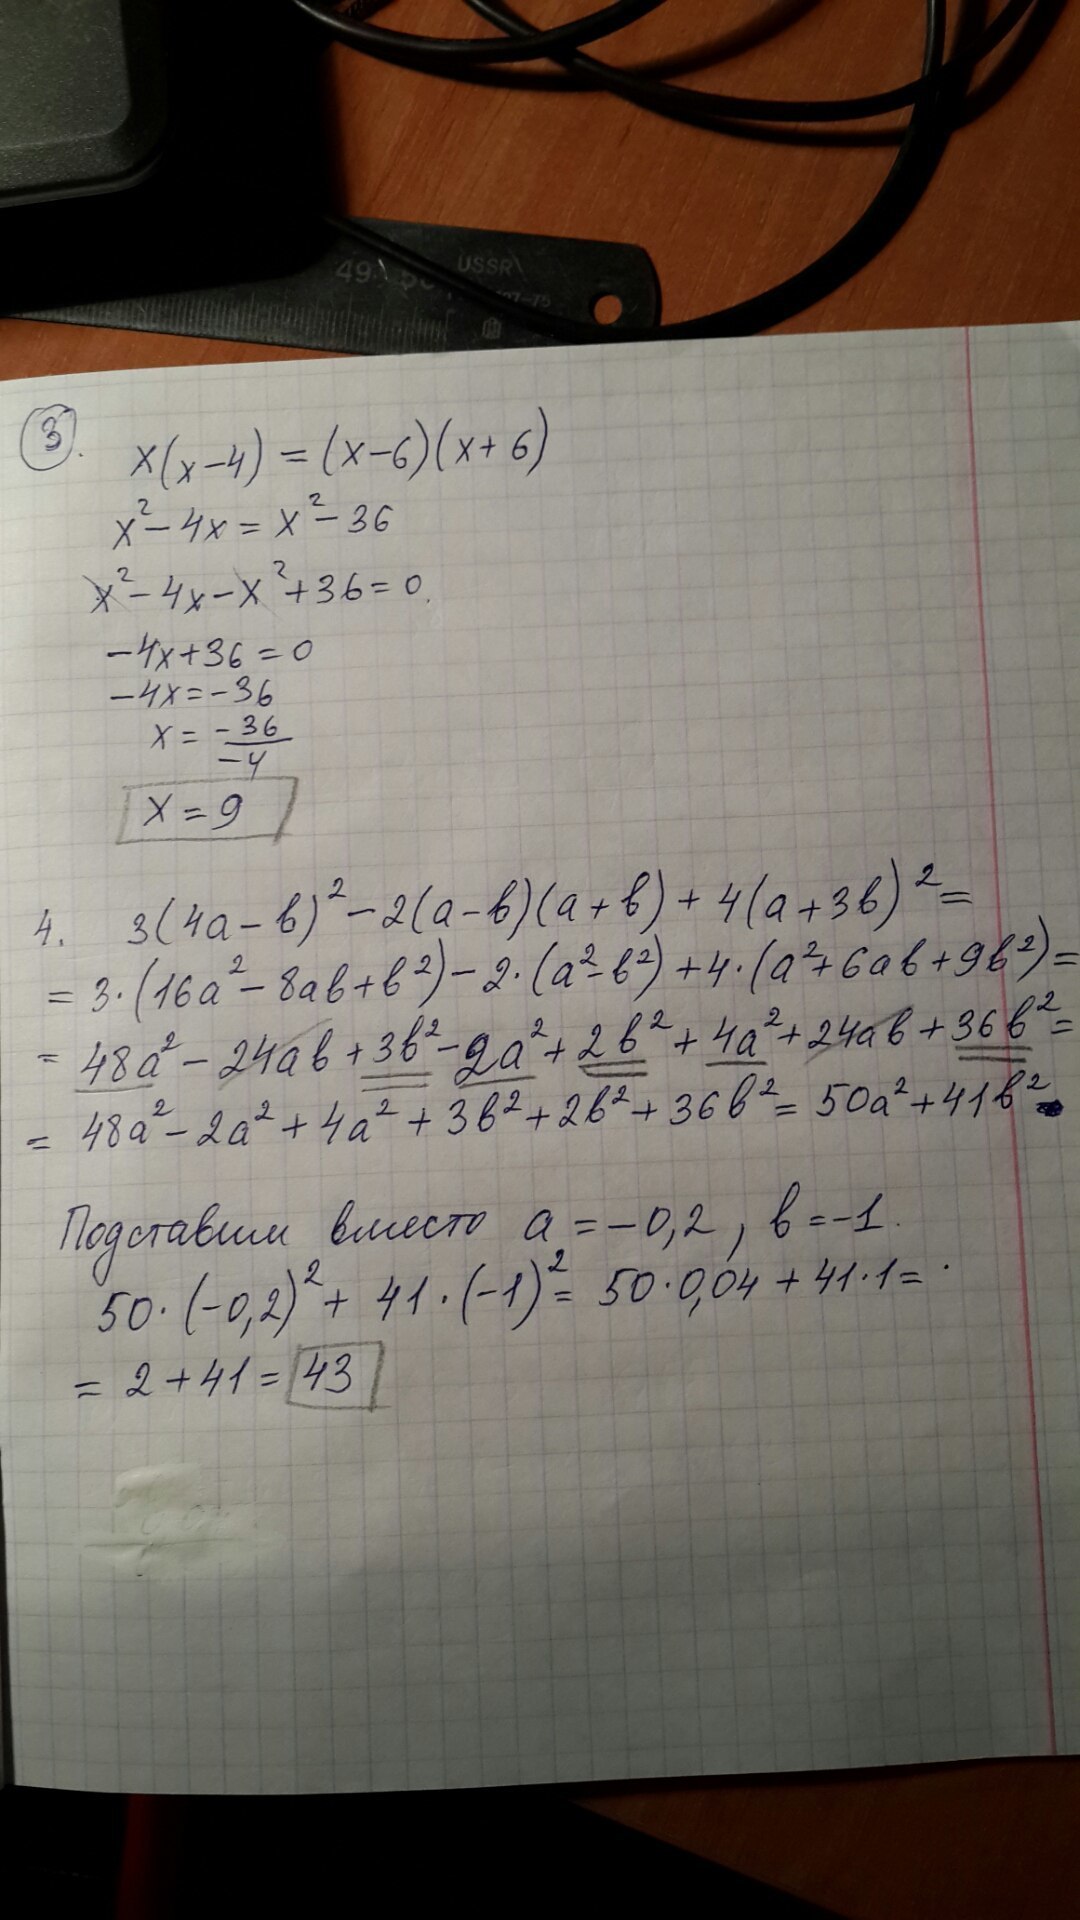 USSR
49 50
3.
x(x-4) = (x-6)(x+6)
x²-4x = x²-36
x²-4x-x²+36=0.
-4x+36=0
-4x=-36
x = -36/-4
x = 9
4. 3(4a-b)²-2(a-b)(a+b)+4(a+3b)²=
= 3·(16a²-8ab+b²)-2·(a²-b²)+4·(a²+6ab+9b²)=
= 48a²-24ab+3b²-2a²+2b²+4a²+24ab+36b²=
= 48a²-2a²+4a²+3b²+2b²+36b²=50a²+41b²
Подставим вместо a=-0,2, b=-1.
50·(-0,2)²+41·(-1)²=50·0,04+41·1=
= 2+41=43